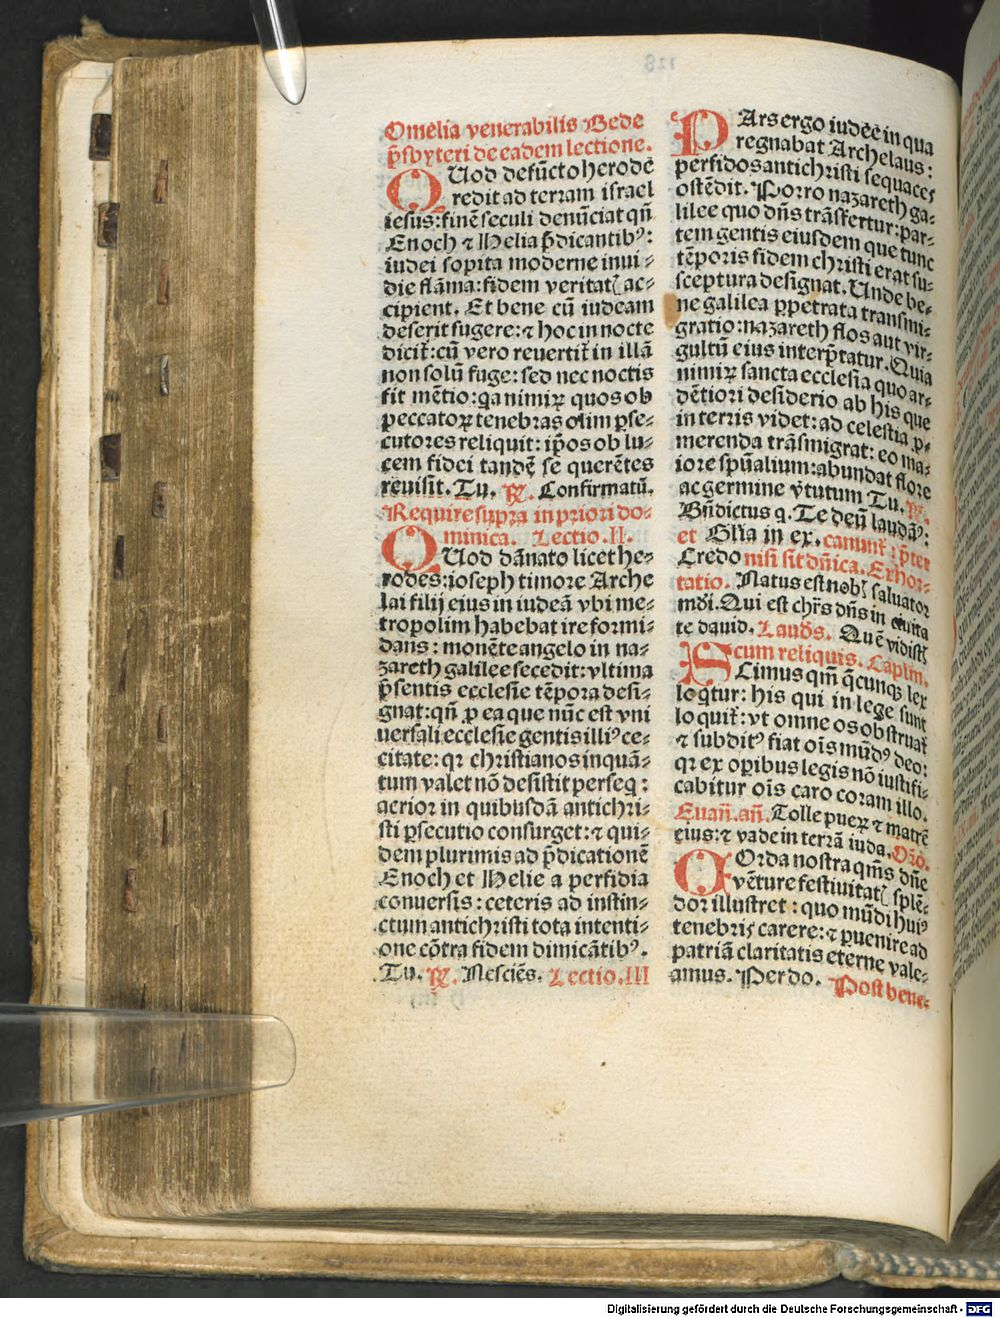 Omelia venerabilis Bede
p̄sbyteri de eadem lectione.
QUod defūcto herode
redit ad terram israel
iesus: finē seculi denūciat qn̄
Enoch ⁊ Helia p̄dicantibꝰ:
iudei sopita moderne inui-
die flāma: fidem veritatꝭ ac-
cipient. Et bene cū iudeam
deserit fugere: ⁊ hoc in nocte
dicit̄: cū vero reuertit̄ in illā
non solū fuge: sed nec noctis
fit mētio: qa nimiꝝ quos ob
peccatoꝝ tenebras olim ꝑse-
cutores reliquit: ip̄os ob lu-
cem fidei tandē se querētes
reuisit. Tu. ℟. Confirmatū.
Require supra in priori do-
minica. Lectio. II.
QUod dānato licet he-
rodes: ioseph timore Arche
lai filij eius in iudeā vbi me-
tropolim habebat ire formi-
dans: monēte angelo in na-
zareth galilee secedit: vltima
p̄sentis ecclesie tēpora desi-
gnat: qn̄ ꝑ ea que nūc est vni
uersali ecclesie gentis illiꝰ ce-
citate: qr christianos inquā-
tum valet nō desistit perseq:
acrior in quibusdā antichri-
sti ꝑsecutio consurget: ⁊ qui-
dem plurimis ad p̄dicationē
Enoch et Helie a perfidia
conuersis: ceteris ad instin-
ctum antichristi tota intenti-
one cōtra fidem dimicātibꝰ.
Tu. ℟. Nesciēs. Lectio. III
PArs ergo iudēe in qua
regnabat Archelaus:
perfidos antichristi sequaces
ostēdit. Porro nazareth ga-
lilee quo dn̄s trāsfertur: par-
tem gentis eiusdem que tunc
tēporis fidem christi erat su-
sceptura designat. Unde be-
ne galilea ꝑpetrata transmi-
gratio: nazareth flos aut vir-
gultū eius interp̄tatur. Quia
nimiꝝ sancta ecclesia quo ar-
dētiori desiderio ab his que
in terris videt: ad celestia ꝑ-
merenda trāsmigrat: eo ma-
iore spūalium: abundat flore
ac germine v̄tutum Tu. ℟.
Bn̄dictus q. Te deū laudāꝰ:
et Gl̄ia in ex. canunt̄: p̄ter
Credo nisi sit dn̄ica. Exhor-
tatio. Natus est nobꝭ saluator
mūdi. Qui est chr̄s dn̄s in ciuita
te dauid. Laudꝭ. Quē vidistꝭ
cum reliquis. Caplm̄.
SCimus qm̄ q̄cunqꝫ lex
loq̄tur: his qui in lege sunt
loquit̄: vt omne os obstruat̄
⁊ subditꝰ fiat oīs mūdꝰ deo:
qr ex oꝑibus legis nō iustifi-
cabitur oīs caro coram illo.
Euan̄. an̄. Tolle pueꝝ ⁊ matrē
eius: ⁊ vade in terrā iuda. Or̄o.
COrda nostra qm̄s dn̄e
vēture festiuitatꝭ splē-
dor illustret: quo mūdi huiꝰ
tenebris carere: ⁊ ꝑuenire ad
patriā claritatis eterne vale-
amus. Per do. Post bene-
Digitalisierung gefördert durch die Deutsche Forschungsgemeinschaft - DFG